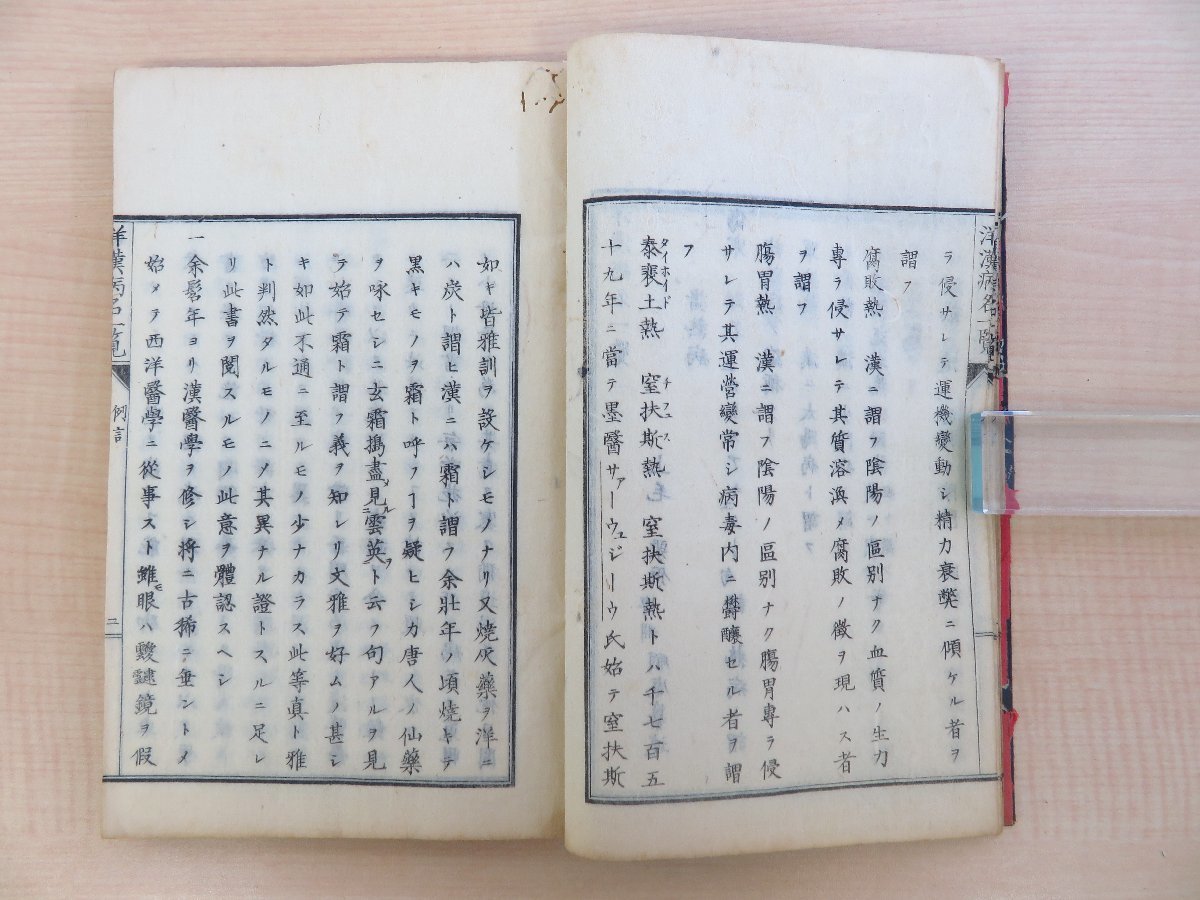 洋漢病名一覧
ヲ侵サレテ運機變動シ精力衰弊ニ傾ケル者ヲ
謂フ
腐敗熱　漢ニ謂フ陰陽ノ區別ナク血質ノ生力
專ラ侵サレテ其質溶渙メ腐敗ノ徴ヲ現ハス者
ヲ謂フ
腸胃熱　漢ニ謂フ陰陽ノ區別ナク腸胃專ラ侵
サレテ其運營變常シ病毒内ニ欝釀セル者ヲ謂
フ
泰裵土熱　窒扶斯熱　窒扶斯熱トハ千七百五
タイホイド　チフス
十九年ニ當テ墨醫サァーウュジリウ氏始テ窒扶斯
如キ皆雅訓ヲ設ケシモノナリ又燒灰藥ヲ洋ニ
ハ炭ト謂ヒ漢ニハ霜ト謂フ余壯年ノ頃燒キテ
黒キモノヲ霜ト呼フヿヲ疑ヒシカ唐人ノ仙藥
ヲ咏セシニ玄霜搗盡見ルニ雲英ヲト云フ句アルヲ見
テ始テ霜ト謂フ義ヲ知レリ文雅ヲ好ムノ甚シ
キ如此不通ニ至ルモノ少ナカラス此等真ト雅
ト判然タルモノニメ其異ナル證トスルニ足レ
リ此書ヲ閲スルモノ此意ヲ體認スヘシ
一余髫年ヨリ漢醫學ヲ修シ將ニ古稀ニ垂ントメ
始メテ西洋醫學ニ從事スト雖モ眼ハ靉靆鏡ヲ假
洋漢病名一覧
例言
二